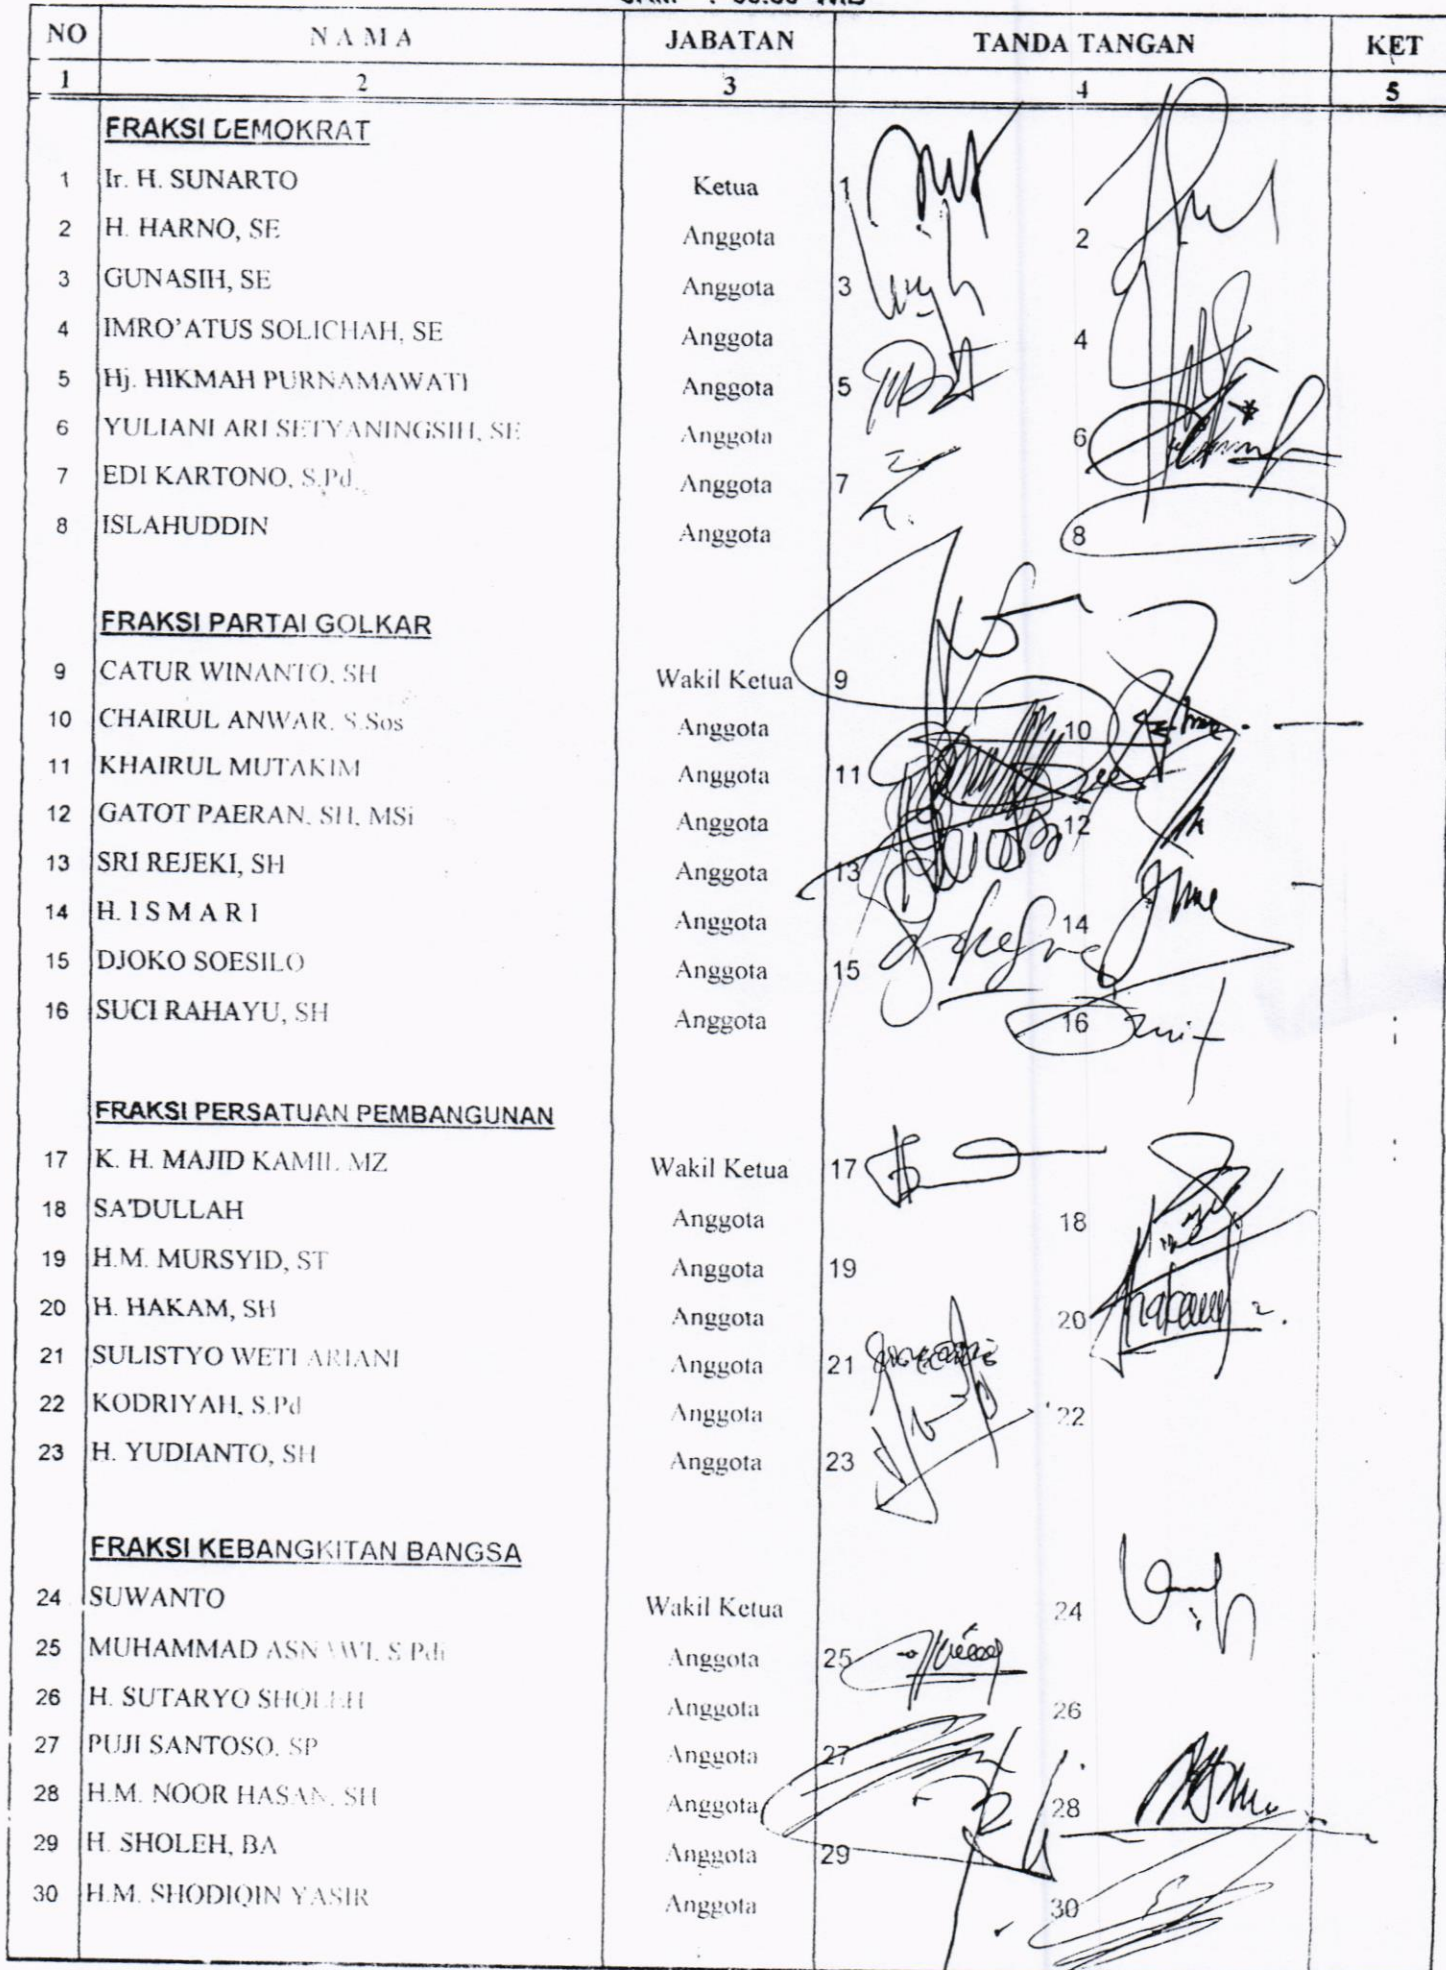 NO NAMA JABATAN TANDA TANGAN KET
1 2 3 4 5
FRAKSI DEMOKRAT
1 Ir. H. SUNARTO Ketua 1
2 H. HARNO, SE Anggota 2
3 GUNASIH, SE Anggota 3
4 IMRO'ATUS SOLICHAH, SE Anggota 4
5 Hj. HIKMAH PURNAMAWATI Anggota 5
6 YULIANI ARI SETYANINGSIH, SE Anggota 6
7 EDI KARTONO, S.Pd. Anggota 7
8 ISLAHUDDIN Anggota 8
FRAKSI PARTAI GOLKAR
9 CATUR WINANTO, SH Wakil Ketua 9
10 CHAIRUL ANWAR, S.Sos Anggota 10
11 KHAIRUL MUTAKIM Anggota 11
12 GATOT PAERAN, SH, MSi Anggota 12
13 SRI REJEKI, SH Anggota 13
14 H. I S M A R I Anggota 14
15 DJOKO SOESILO Anggota 15
16 SUCI RAHAYU, SH Anggota 16
FRAKSI PERSATUAN PEMBANGUNAN
17 K. H. MAJID KAMIL MZ Wakil Ketua 17
18 SA'DULLAH Anggota 18
19 H.M. MURSYID, ST Anggota 19
20 H. HAKAM, SH Anggota 20
21 SULISTYO WETI ARIANI Anggota 21
22 KODRIYAH, S.Pd Anggota 22
23 H. YUDIANTO, SH Anggota 23
FRAKSI KEBANGKITAN BANGSA
24 SUWANTO Wakil Ketua 24
25 MUHAMMAD ASNAWI, S.Pdi Anggota 25
26 H. SUTARYO SHOLEH Anggota 26
27 PUJI SANTOSO, SP Anggota 27
28 H.M. NOOR HASAN, SH Anggota 28
29 H. SHOLEH, BA Anggota 29
30 H.M. SHODIQIN YASIR Anggota 30